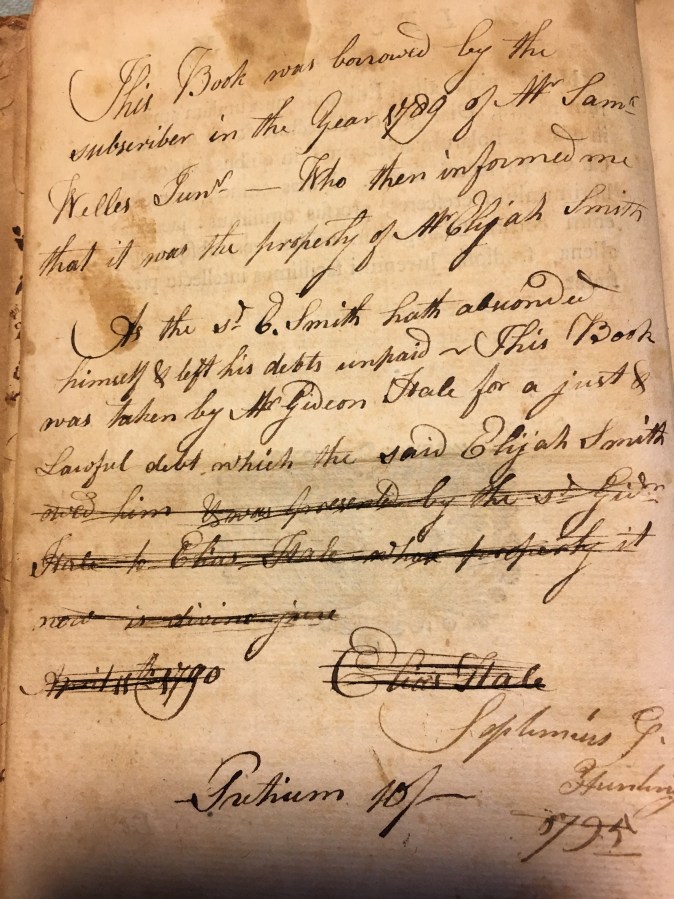 This Book was borrowed by the
subscriber in the Year 1789 of Mr Samˡ
Welles Junʳ — Who then informed me
that it was the property of Mr Elijah Smith
As the sᵈ E. Smith hath absconded
himself & left his debts unpaid ~ This Book
was taken by Mr Gideon Hale for a just &
Lawful debt which the said Elijah Smith
owed him & was presented by the sᵈ Gidⁿ
Hale to Elias Hale whose property it
now is divino jure
April 11th 1790 Elias Hale
Septimius G.
Pretium 10/—
1795